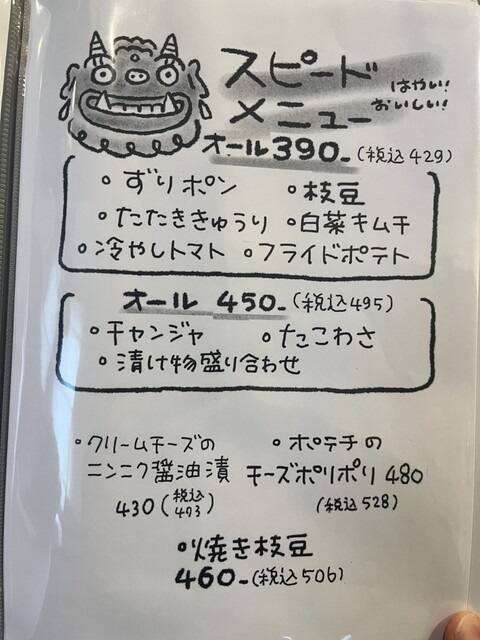 スピード
メニュー
はやい!
おいしい!
オール390-(税込429)
・ずりポン ・枝豆
・たたききゅうり ・白菜キムチ
・冷やしトマト ・フライドポテト
オール 450-(税込495)
・チャンジャ ・たこわさ
・漬け物盛り合わせ
・クリームチーズの
ニンニク醤油漬
430(税込473)
・ポテチの
チーズポリポリ 480
(税込528)
・焼き枝豆
460-(税込506)